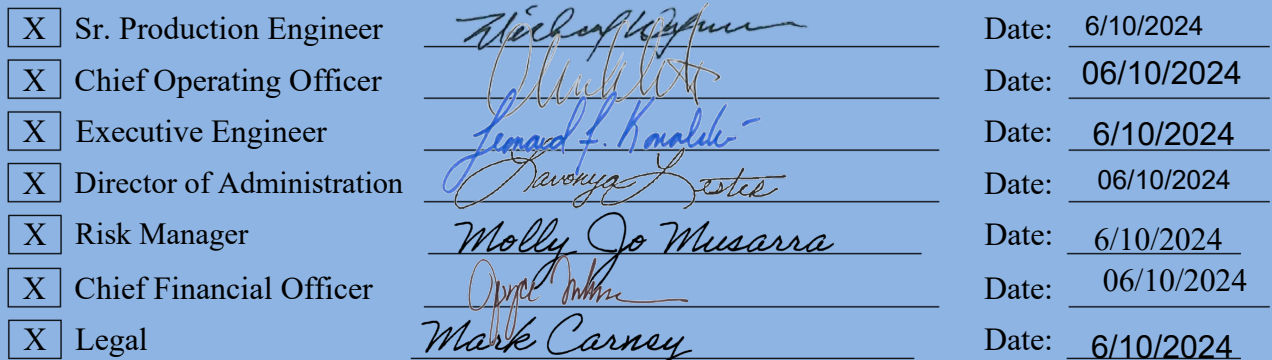 X Sr. Production Engineer Date: 6/10/2024
X Chief Operating Officer Date: 06/10/2024
X Executive Engineer Leonard F. Date: 6/10/2024
X Director of Administration Lavonya Lester Date: 06/10/2024
X Risk Manager Molly Jo Musarra Date: 6/10/2024
X Chief Financial Officer Joyce Date: 06/10/2024
X Legal Mark Carney Date: 6/10/2024